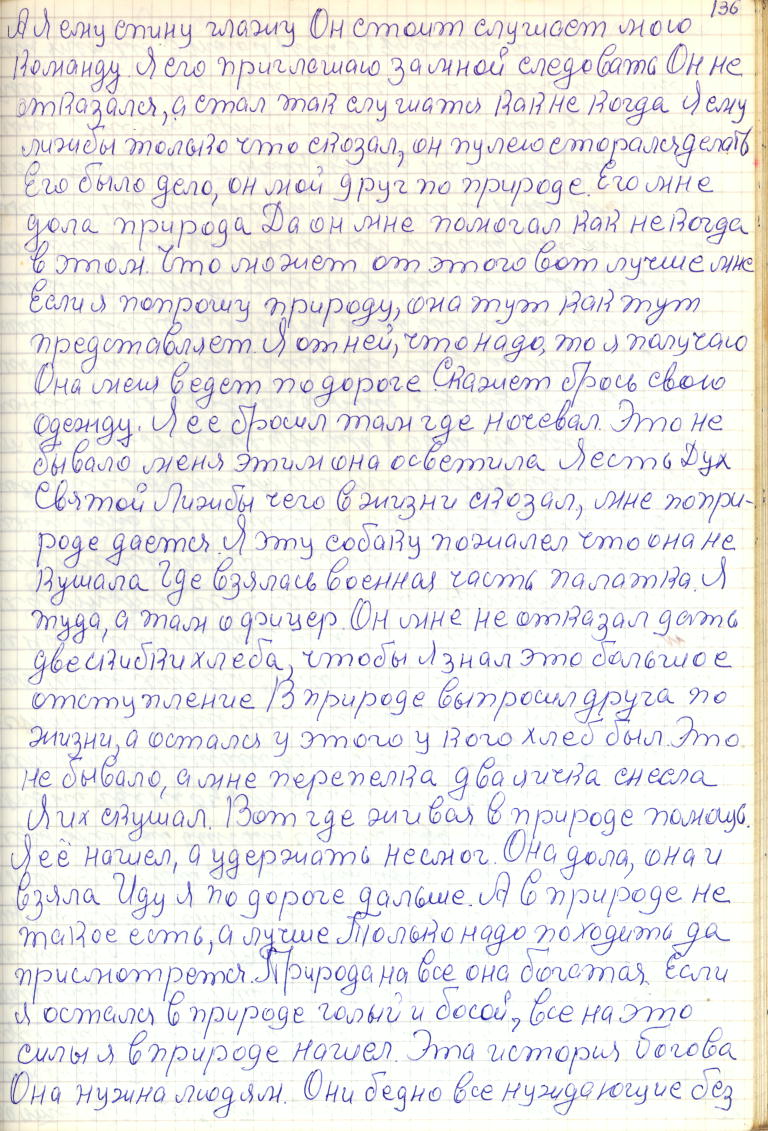 136
А Я ему спину глажу Он стоит слушает мою
Команду. Я его приглашаю за мной следовать Он не
отказался, а стал так слушатся как не когда Я ему
лижбы только что сказал, он пулею сторался делать
Его было дело, он мой друг по природе. Его мне
дола природа Да он мне помогал как не когда
в этом. Что может от этого вот лучше мне
Если я попрошу природу, она тут как тут
представляет. Я от ней, что надо, то я получаю
Она меня ведет по дороге. Скажет брось свою
одежду. Я ее бросил там где ночевал. Это не
бывало меня этим она осветила Я есть Дух
Святой Лижбы чего в жизни сказал, мне по при-
роде дается. Я эту собаку пожалел что она не
кушала Где взялась военная часть палатка. Я
туда, а там офицер. Он мне не отказал дать
две скибки хлеба, чтобы я знал это большое
отступление В природе выпросил друга по
жизни, а остался у этого у кого хлеб был. Это
не бывало, а мне перепелка два яичка снесла
Я их скушал. Вот где живая в природе помощь.
Я её нашел, а удержать не смог. Она дола, она и
взяла Иду я по дороге дальше. А в природе не
такое есть, а лучше Только надо походить да
присмотретя. Природа на все она богатая Если
я остался в природе голый и босой, все на это
силы я в природе нашел. Эта история богова
Она нужна людям. Они бедно все нуждающие без